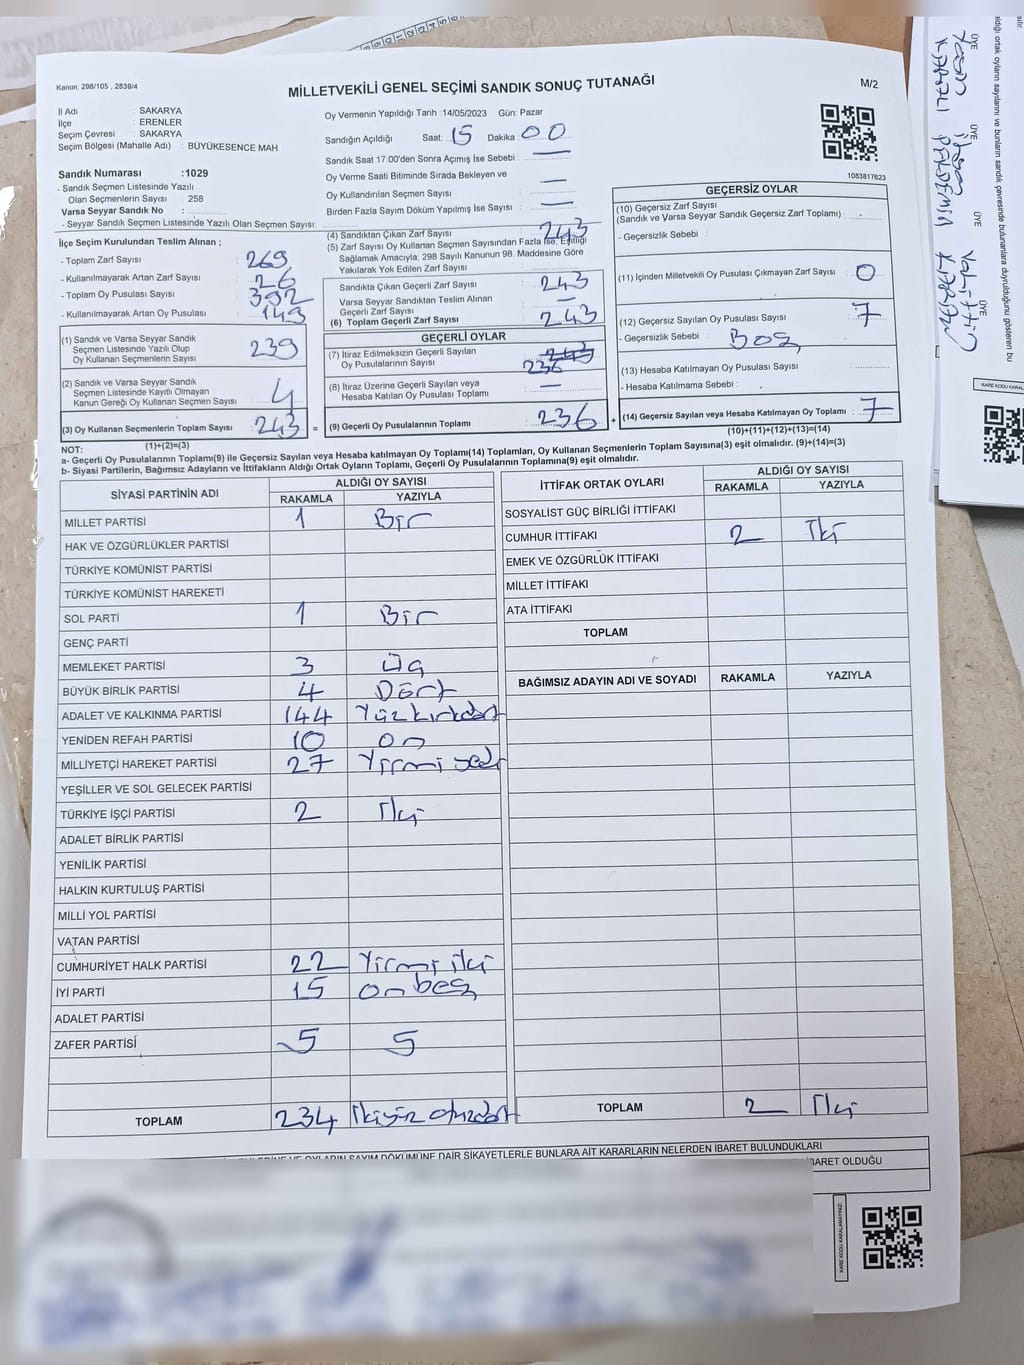 Kanun: 298/105 , 2839/4
MİLLETVEKİLİ GENEL SEÇİMİ SANDIK SONUÇ TUTANAĞI
M/2
İl Adı : SAKARYA
İlçe : ERENLER
Seçim Çevresi : SAKARYA
Seçim Bölgesi (Mahalle Adı) : BÜYÜKESENCE MAH.
Sandık Numarası :1029
- Sandık Seçmen Listesinde Yazılı
Olan Seçmenlerin Sayısı : 258
Varsa Seyyar Sandık No :
- Seyyar Sandık Seçmen Listesinde Yazılı Olan Seçmen Sayısı:
Oy Vermenin Yapıldığı Tarih :14/05/2023 Gün: Pazar
Sandığın Açıldığı Saat: 15 Dakika 00
Sandık Saat 17:00'den Sonra Açımış İse Sebebi : —
Oy Verme Saati Bitiminde Sırada Bekleyen ve
Oy Kullandırılan Seçmen Sayısı : —
Birden Fazla Sayım Döküm Yapılmış İse Sayısı : —
1083817623
İlçe Seçim Kurulundan Teslim Alınan ;
- Toplam Zarf Sayısı : 269
- Kullanılmayarak Artan Zarf Sayısı : 26
- Toplam Oy Pusulası Sayısı : 392
- Kullanılmayarak Artan Oy Pusulası : 149
(1) Sandık ve Varsa Seyyar Sandık
Seçmen Listesinde Yazılı Olup
Oy Kullanan Seçmenlerin Sayısı : 239
(2) Sandık ve Varsa Seyyar Sandık
Seçmen Listesinde Kayıtlı Olmayan
Kanun Gereği Oy Kullanan Seçmen Sayısı : 4
(3) Oy Kullanan Seçmenlerin Toplam Sayısı : 243 =
(4) Sandıktan Çıkan Zarf Sayısı : 243
(5) Zarf Sayısı Oy Kullanan Seçmen Sayısından Fazla İse, Eşitliği
Sağlamak Amacıyla, 298 Sayılı Kanunun 98. Maddesine Göre
Yakılarak Yok Edilen Zarf Sayısı :
Sandıkta Çıkan Geçerli Zarf Sayısı : 243
Varsa Seyyar Sandıktan Teslim Alınan
Geçerli Zarf Sayısı : —
(6) Toplam Geçerli Zarf Sayısı : 243
GEÇERLİ OYLAR
(7) İtiraz Edilmeksizin Geçerli Sayılan 243
Oy Pusulalarının Sayısı : 236
(8) İtiraz Üzerine Geçerli Sayılan veya
Hesaba Katılan Oy Pusulası Toplamı : —
(9) Geçerli Oy Pusulalarının Toplamı : 236 +
GEÇERSİZ OYLAR
(10) Geçersiz Zarf Sayısı
(Sandık ve Varsa Seyyar Sandık Geçersiz Zarf Toplamı) :
- Geçersizlik Sebebi :
(11) İçinden Milletvekili Oy Pusulası Çıkmayan Zarf Sayısı : 0
(12) Geçersiz Sayılan Oy Pusulası Sayısı : 7
- Geçersizlik Sebebi : Boş
(13) Hesaba Katılmayan Oy Pusulası Sayısı :
- Hesaba Katılmama Sebebi :
(14) Geçersiz Sayılan veya Hesaba Katılmayan Oy Toplamı : 7
NOT: (1)+(2)=(3) (10)+(11)+(12)+(13)=(14)
a- Geçerli Oy Pusulalarının Toplamı(9) ile Geçersiz Sayılan veya Hesaba katılmayan Oy Toplamı(14) Toplamları, Oy Kullanan Seçmenlerin Toplam Sayısına(3) eşit olmalıdır. (9)+(14)=(3)
b- Siyasi Partilerin, Bağımsız Adayların ve İttifakların Aldığı Ortak Oyların Toplamı, Geçerli Oy Pusulalarının Toplamına(9) eşit olmalıdır.
SİYASİ PARTİNİN ADI ALDIĞI OY SAYISI
RAKAMLA YAZIYLA
MİLLET PARTİSİ 1 Bir
HAK VE ÖZGÜRLÜKLER PARTİSİ
TÜRKİYE KOMÜNİST PARTİSİ
TÜRKİYE KOMÜNİST HAREKETİ
SOL PARTİ 1 Bir
GENÇ PARTİ
MEMLEKET PARTİSİ 3 üç
BÜYÜK BİRLİK PARTİSİ 4 Dört
ADALET VE KALKINMA PARTİSİ 144 Yüzkırkdört
YENİDEN REFAH PARTİSİ 10 on
MİLLİYETÇİ HAREKET PARTİSİ 27 Yirmi yedi
YEŞİLLER VE SOL GELECEK PARTİSİ
TÜRKİYE İŞÇİ PARTİSİ 2 İki
ADALET BİRLİK PARTİSİ
YENİLİK PARTİSİ
HALKIN KURTULUŞ PARTİSİ
MİLLİ YOL PARTİSİ
VATAN PARTİSİ
CUMHURİYET HALK PARTİSİ 22 Yirmi iki
İYİ PARTİ 15 on beş
ADALET PARTİSİ
ZAFER PARTİSİ 5 5
TOPLAM 234 İkiyüz otuzdört
İTTİFAK ORTAK OYLARI ALDIĞI OY SAYISI
RAKAMLA YAZIYLA
SOSYALİST GÜÇ BİRLİĞİ İTTİFAKI
CUMHUR İTTİFAKI 2 İki
EMEK VE ÖZGÜRLÜK İTTİFAKI
MİLLET İTTİFAKI
ATA İTTİFAKI
TOPLAM
BAĞIMSIZ ADAYIN ADI VE SOYADI RAKAMLA YAZIYLA
TOPLAM 2 İki
OYLARIN SAYIM DÖKÜMÜNE DAİR ŞİKAYETLERLE BUNLARA AİT KARARLARIN NELERDEN İBARET BULUNDUKLARI
İBARET OLDUĞU
KARE KODU KARALAMAYINIZ!
ÜYE
ÜYE
ÜYE
ÜYE
aldığı ortak oyların sayılarını ve bunların sandık çevresinde bulunanlara duyrulduğunu gösteren bu
KARE KODU KARAL